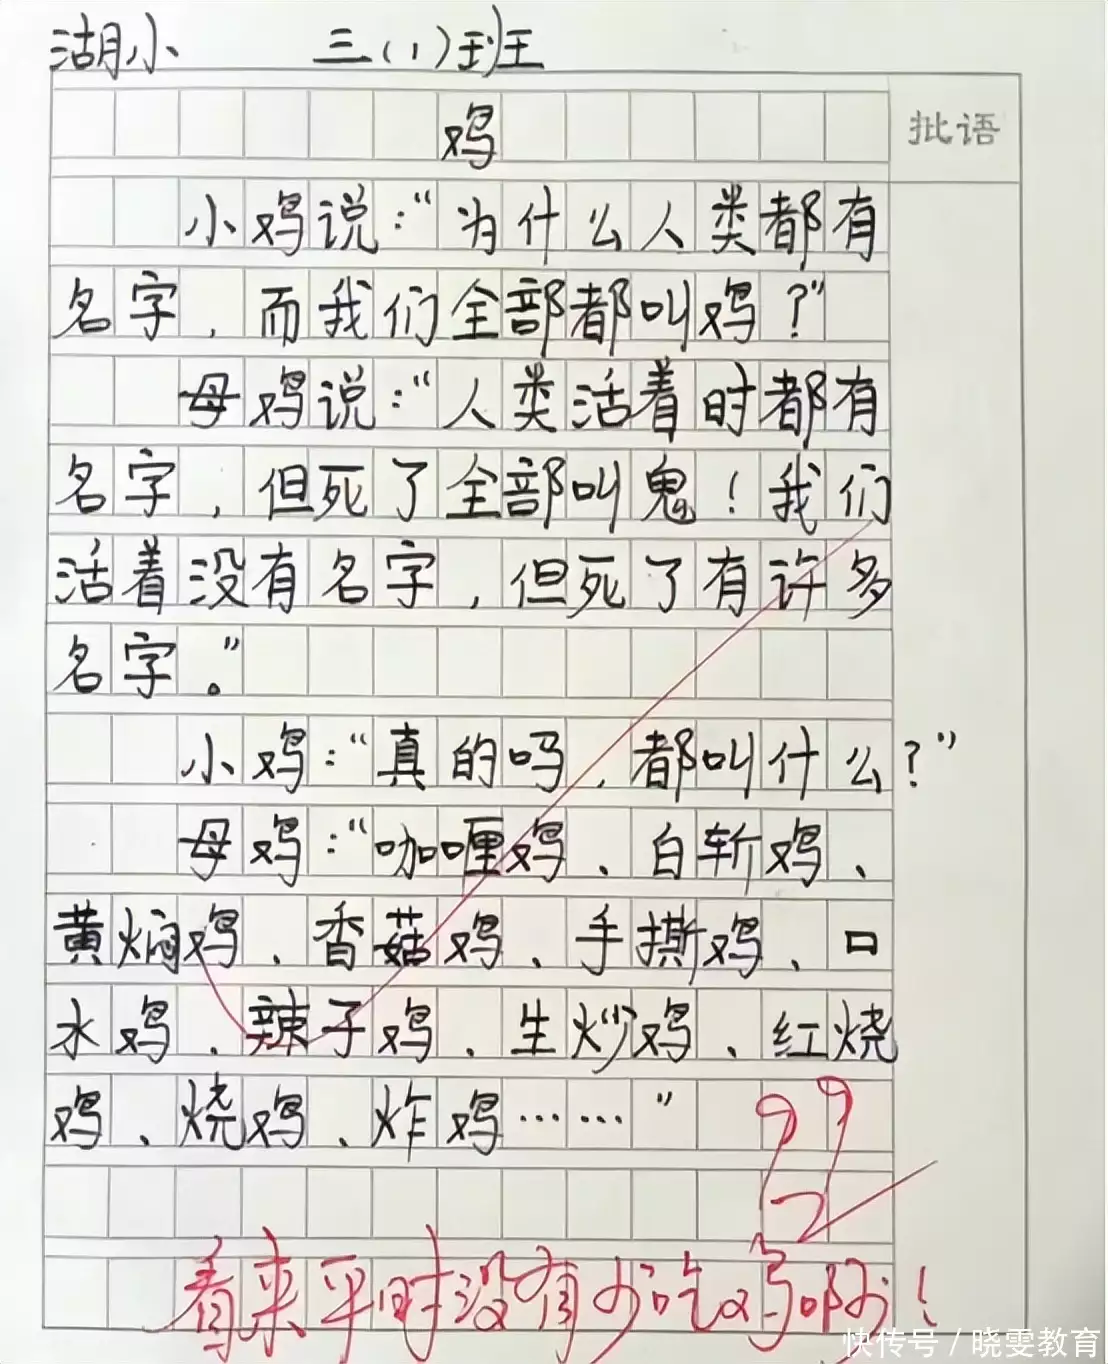 湖小 三(1)班
鸡
批语
小鸡说：“为什么人类都有
名字，而我们全部都叫鸡？”
母鸡说：“人类活着时都有
名字，但死了全部叫鬼！我们
活着没有名字，但死了有许多
名字。”
小鸡：“真的吗，都叫什么？”
母鸡：“咖喱鸡、白斩鸡、
黄焖鸡、香菇鸡、手撕鸡、口
水鸡、辣子鸡、生炒鸡、红烧
鸡、烧鸡、炸鸡……”
99
看来平时没有少吃鸡啊！
快传号 / 晓雯教育